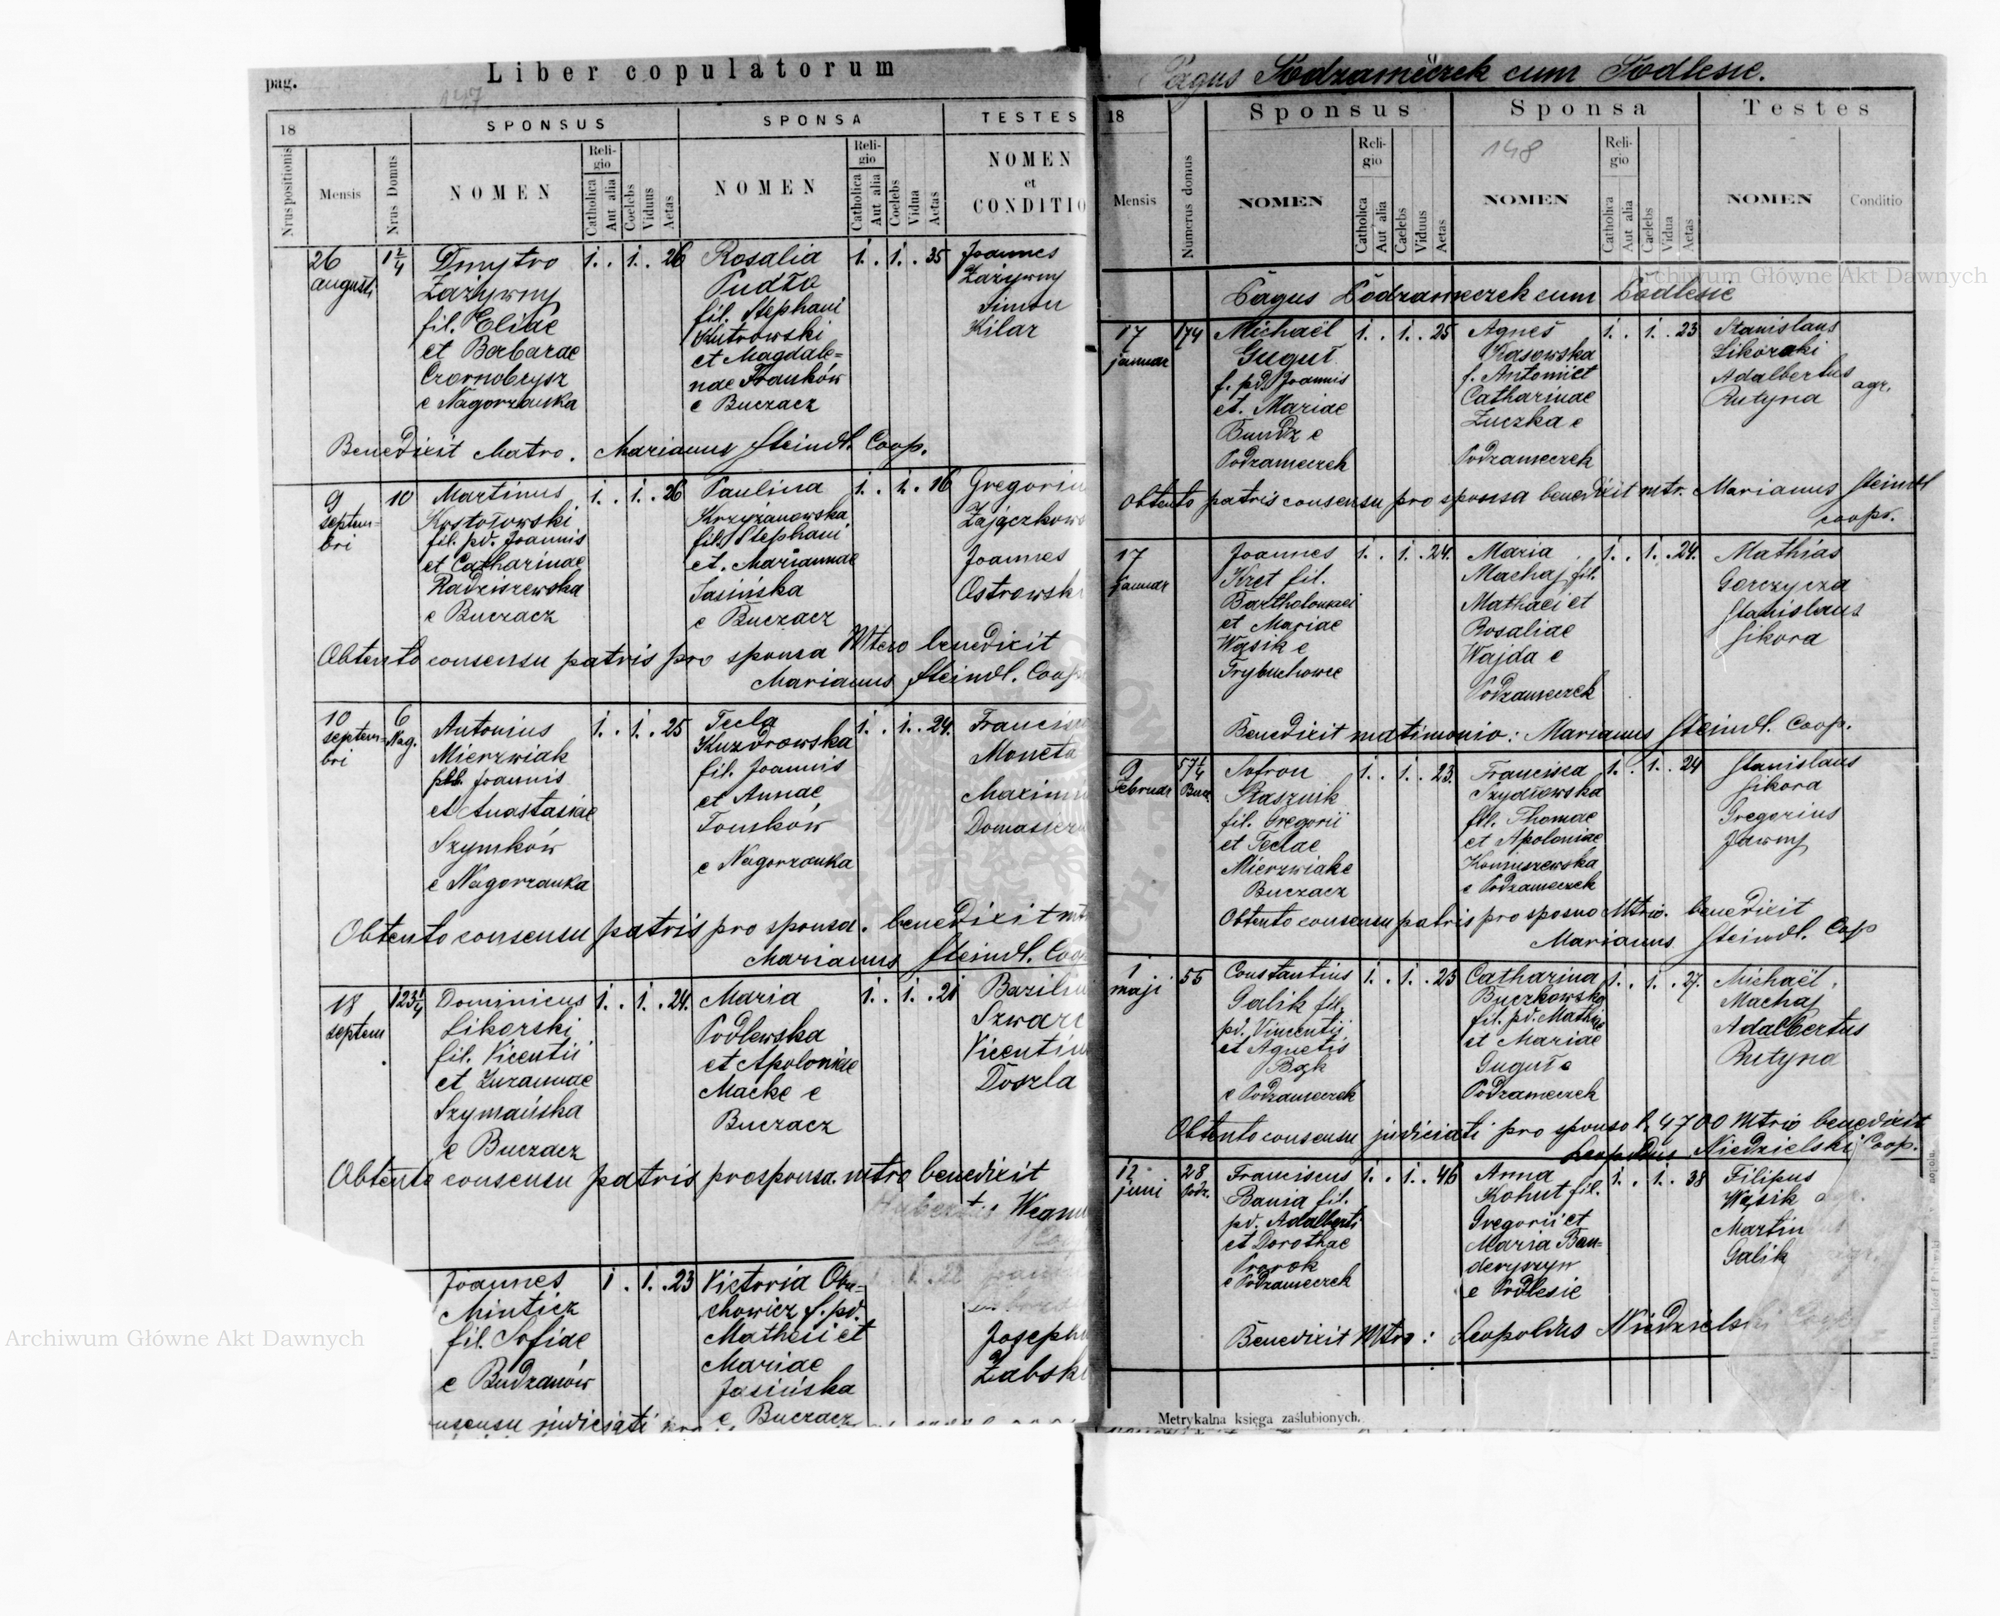 pag.
Liber copulatorum
147
18
SPONSUS
SPONSA
TESTES
Nrus positionis
Mensis
Nrus Domus
NOMEN
Religio
Catholica
Aut alia
Coelebs
Viduus
Aetas
NOMEN
Religio
Catholica
Aut alia
Coelebs
Vidua
Aetas
NOMEN
et
CONDITIO
26 augusti
1 2/4
Dmytro
Zażywny
fil. Eliae
et Barbarae
Czornobrysz
e Nagorzanka
1. . 1. . 26
Rosalia
Pudło
fil. Stephani
Kutrowski
et Magdale=
nae Franków
e Buczacz
1. . 1. . 35
Joannes
Zażywny
Simon
Hilar
Benedixit Matro. Marianus Steindl. Coop.
9 septem=
bri
10
Martinus
Kostołowski
fil. pd. Joannis
et Catharinae
Radziszewska
e Buczacz
1. . 1. . 26
Paulina
Krzyżanowska
fil. Stephani
et. Mariannae
Jasińska
e Buczacz
1. . 1. . 16
Gregoriu
Zajączkows
Joannes
Ostrowski
Obtento consensu patris pro sponsa Mtero benedixit
Marianus Steindl. Coop
10 septem=
bri
6 Nag.
Antonius
Mierzwiak
fil. Joannis
et Anastasiae
Szymków
e Nagorzanka
1. . 1. . 25
Tecla
Kuzdrowska
fil. Joannis
et Annae
Tomków
e Nagorzanka
1. . 1. . 24.
Francisc
Moneta
Maximi
Domasiew
Obtento consensu patris pro sponsa. benedixit mt
Marianus Steindl. Coo
18 septem
.
123 1/4
Dominicus
Sikorski
fil. Vicentii
et Zuzannae
Szymańska
e Buczacz
1. . 1. . 24.
Maria
Podlewska
et Apoloniae
Macke e
Buczacz
1. . 1. . 21
Baziliu
Szwarc
Vicentiu
Doszla
Obtento consensu patris pro sponsa. mtro benedixit
Hubertus Wegnu
Joannes
Minticz
fil. Sofiae
e Budzanów
1 . 1. . 23
Victoria Obu=
chowicz f. pd.
Mathei et
Mariae
Jasińska
e Buczacz
1. 1. . 22
Josephu
Żabski
nsensu judiciati pro
Pagus Podzameczek cum Podlesie.
18
Sponsus
Sponsa
Testes
148
Mensis
Numerus domus
NOMEN
Religio
Catholica
Aut alia
Caelebs
Viduus
Aetas
NOMEN
Religio
Catholica
Aut alia
Caelebs
Vidua
Aetas
NOMEN
Conditio
Archiwum Główne Akt Dawnych
Pagus Podzameczek cum Podlesie
17 januar
174
Michaël
Guguł
f. pd. Joannis
et. Mariae
Bundz e
Podzameczek
1. . 1. . 25
Agneš
Kasowska
f. Antonii et
Catharinae
Zuczka e
Podzameczek
1. . 1. . 23
Stanislaus
Sikorski
Adalbertus
Rutyna
agr.
Obtento patris consensu pro sponsa benedixit mtr. Marianus Steindl
coopr.
17 Januar
Joannes
Kret fil.
Bartholomaei
et Mariae
Wąsik e
Trybuchowce
1. . 1. . 24.
Maria
Machaj fil.
Mathaei et
Rosaliae
Wajda e
Podzameczek
1. . 1. . 24.
Mathias
Gorczycza
Stanislaus
Sikora
Benedixit matimonio: Marianus Steindl. Coop.
9 Februar
57 1/4 Bucz
Sofron
Stasznik
fil. Gregorii
et Teclae
Mierzwiak e
Buczacz
1. . 1. . 23.
Francisca
Szydłowska
fil. Thomae
et Apoloniae
Komiszewska
e Podzameczek
1. . 1. . 24
Stanislaus
Sikora
Gregorius
Jawny
Obtento consensu patris pro sposno Mtrio. benedixit
Marianus Steindl. Coop
1 maji
55
Constantius
Galik fil.
pd. Vincentii
et Agnetis
Bąk
e Podzameczek
1. . 1. . 23
Catharina
Buczkowska
fil. pd. Mathiae
et Mariae
Guguł e
Podzameczek
1. . 1. . 27.
Michaël
Machaj
Adalbertus
Rutyna
Obtento consensu judiciati pro sponso l. 4700 Mtrio benedixit
Leopoldus Niedzielski Coop.
12 juni
28 Podz.
Franciscus
Bania fil.
pd. Adalberti
et Dorothae
Prorok
e Podzameczek
1. . 1. . 46
Anna
Kohut fil.
Gregorii et
Maria Ban=
deryszyn
e Podlesie
1. . 1. . 38
Filipus
Wąsik
Martin
Galik
agr.
Benedixit Mtro: Leopoldus Niedzielski Coop
Metrykalna księga zaślubionych.
Archiwum Główne Akt Dawnych